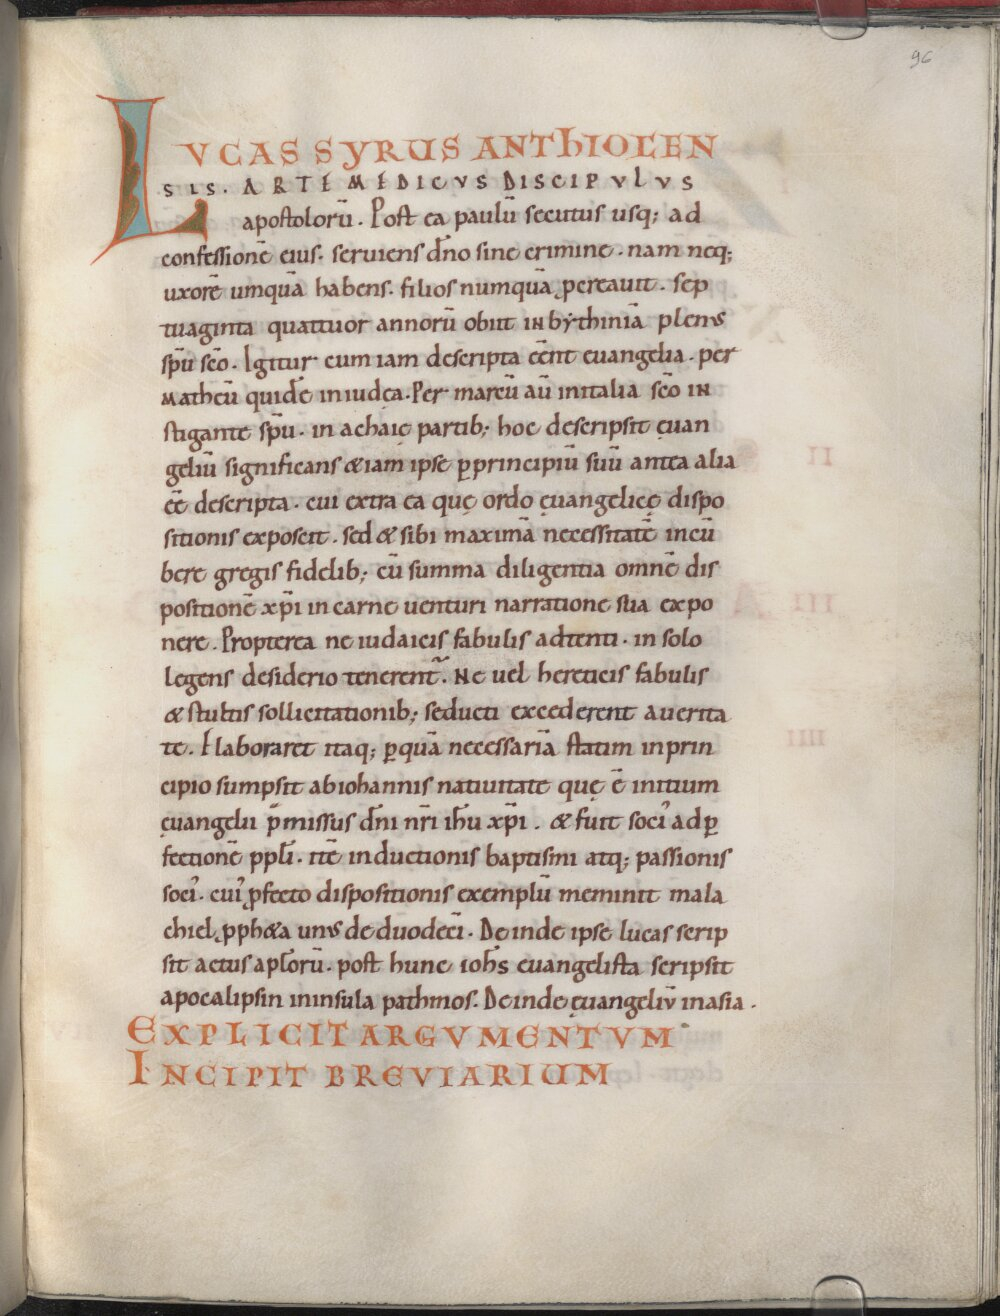 96
LVCAS SYRUS ANTHIOCEN
SIS. ARTE MEDICVS DISCIPVLVS
apostolorū. Post ea paulū secutus usq; ad
confessionē eius. seruiens dño sine crimine. nam neq;
uxorē umquā habens. filios numquā pcreauit. sep
tuaginta quattuor annorū obiit in bẏthinia plenus
spū sc̄o. Igitur cum iam descripta eēnt euangelia. per
Matheū quidē in iudęa. Per marcū aū in italia. sc̄o in
stigante spū. in achaię partib; hoc descripsit ęuan
geliū significans &iam ipse pprincipiū suū antea alia
eē descripta. cui extra ea quę ordo ęuangelicę dispo
sitionis exposcit. sed & sibi maximā necessitatē incū
bere gregis fidelib; cū summa diligentia omnē dis
positionē xp̄i in carne uenturi narratione sua expo
nere. Propterea ne iudaicis fabulis adtenti. in solo
legens desiderio tenerent᷑. Ne uel hereticis fabulis
& stultis sollicitationib; seducti excederent a uerita
te. Elaboraret itaq; pquā necessariā statim in prin
cipio sumpsit ab iohannis natiuitate quę ē initium
ęuangelii p̄missus dñi nr̄i ih̄u xp̄i. & fuit soci᷑ ad p
fectionē ppl̄i. itē inductionis baptismi atq; passionis
soci᷑. cui᷑ pfecto dispositionis exemplū meminit mala
chiel ppheta unus de duodecī. Deinde ipse lucas scrip
sit actus apl̄orū. post hunc ioh̄s euangelista scripsit
apocalipsin in insula pathmos. Deinde ęuangeliū in asia.
EXPLICIT ARGVMENTVM
INCIPIT BREVIARIUM